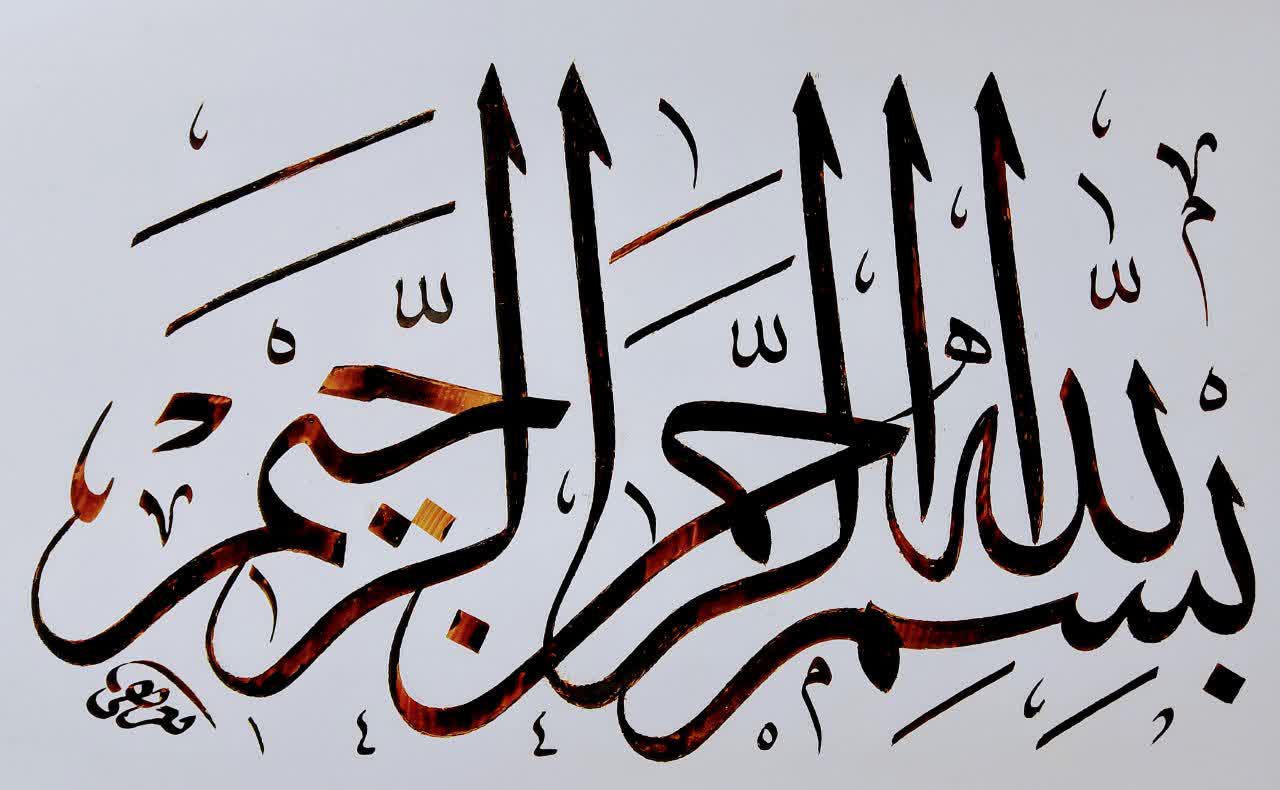 بِسْمِ اللّٰهِ الرَّحْمٰنِ الرَّحِيْمِ
١٤٤٥